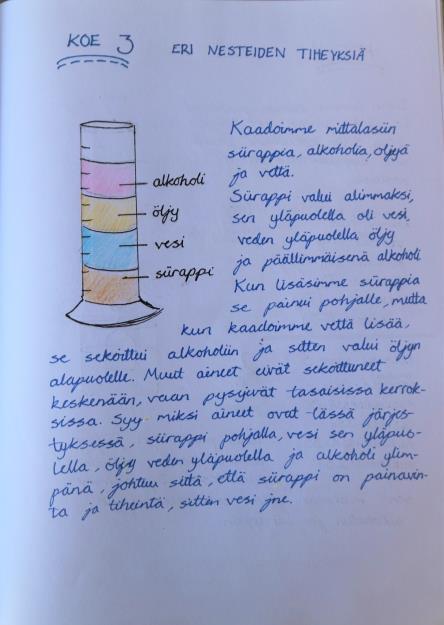 KOE 3
ERI NESTEIDEN TIHEYKSIÄ
alkoholi
öljy
vesi
siirappi
Kaadoimme mittalasiin
siirappia, alkoholia, öljyä
ja vettä.
Siirappi valui alimmaksi,
sen yläpuolella oli vesi,
veden yläpuolella öljy
ja päällimmäisenä alkoholi
Kun lisäsimme siirappia
se painui pohjalle, mutta
kun kaadoimme vettä lisää,
se sekoittui alkoholiin ja sitten valui öljyn
alapuolelle. Muut aineet eivät sekoittuneet
keskenään, vaan pysyivät tasaisissa kerrok-
sissa. Syy miksi aineet ovat tässä järjes-
tyksessä, siirappi pohjalla, vesi sen yläpuo-
lella, öljy veden yläpuolella ja alkoholi ylim-
pänä, johtuu siitä, että siirappi on painavin-
ta ja tiheintä, sitten vesi jne.